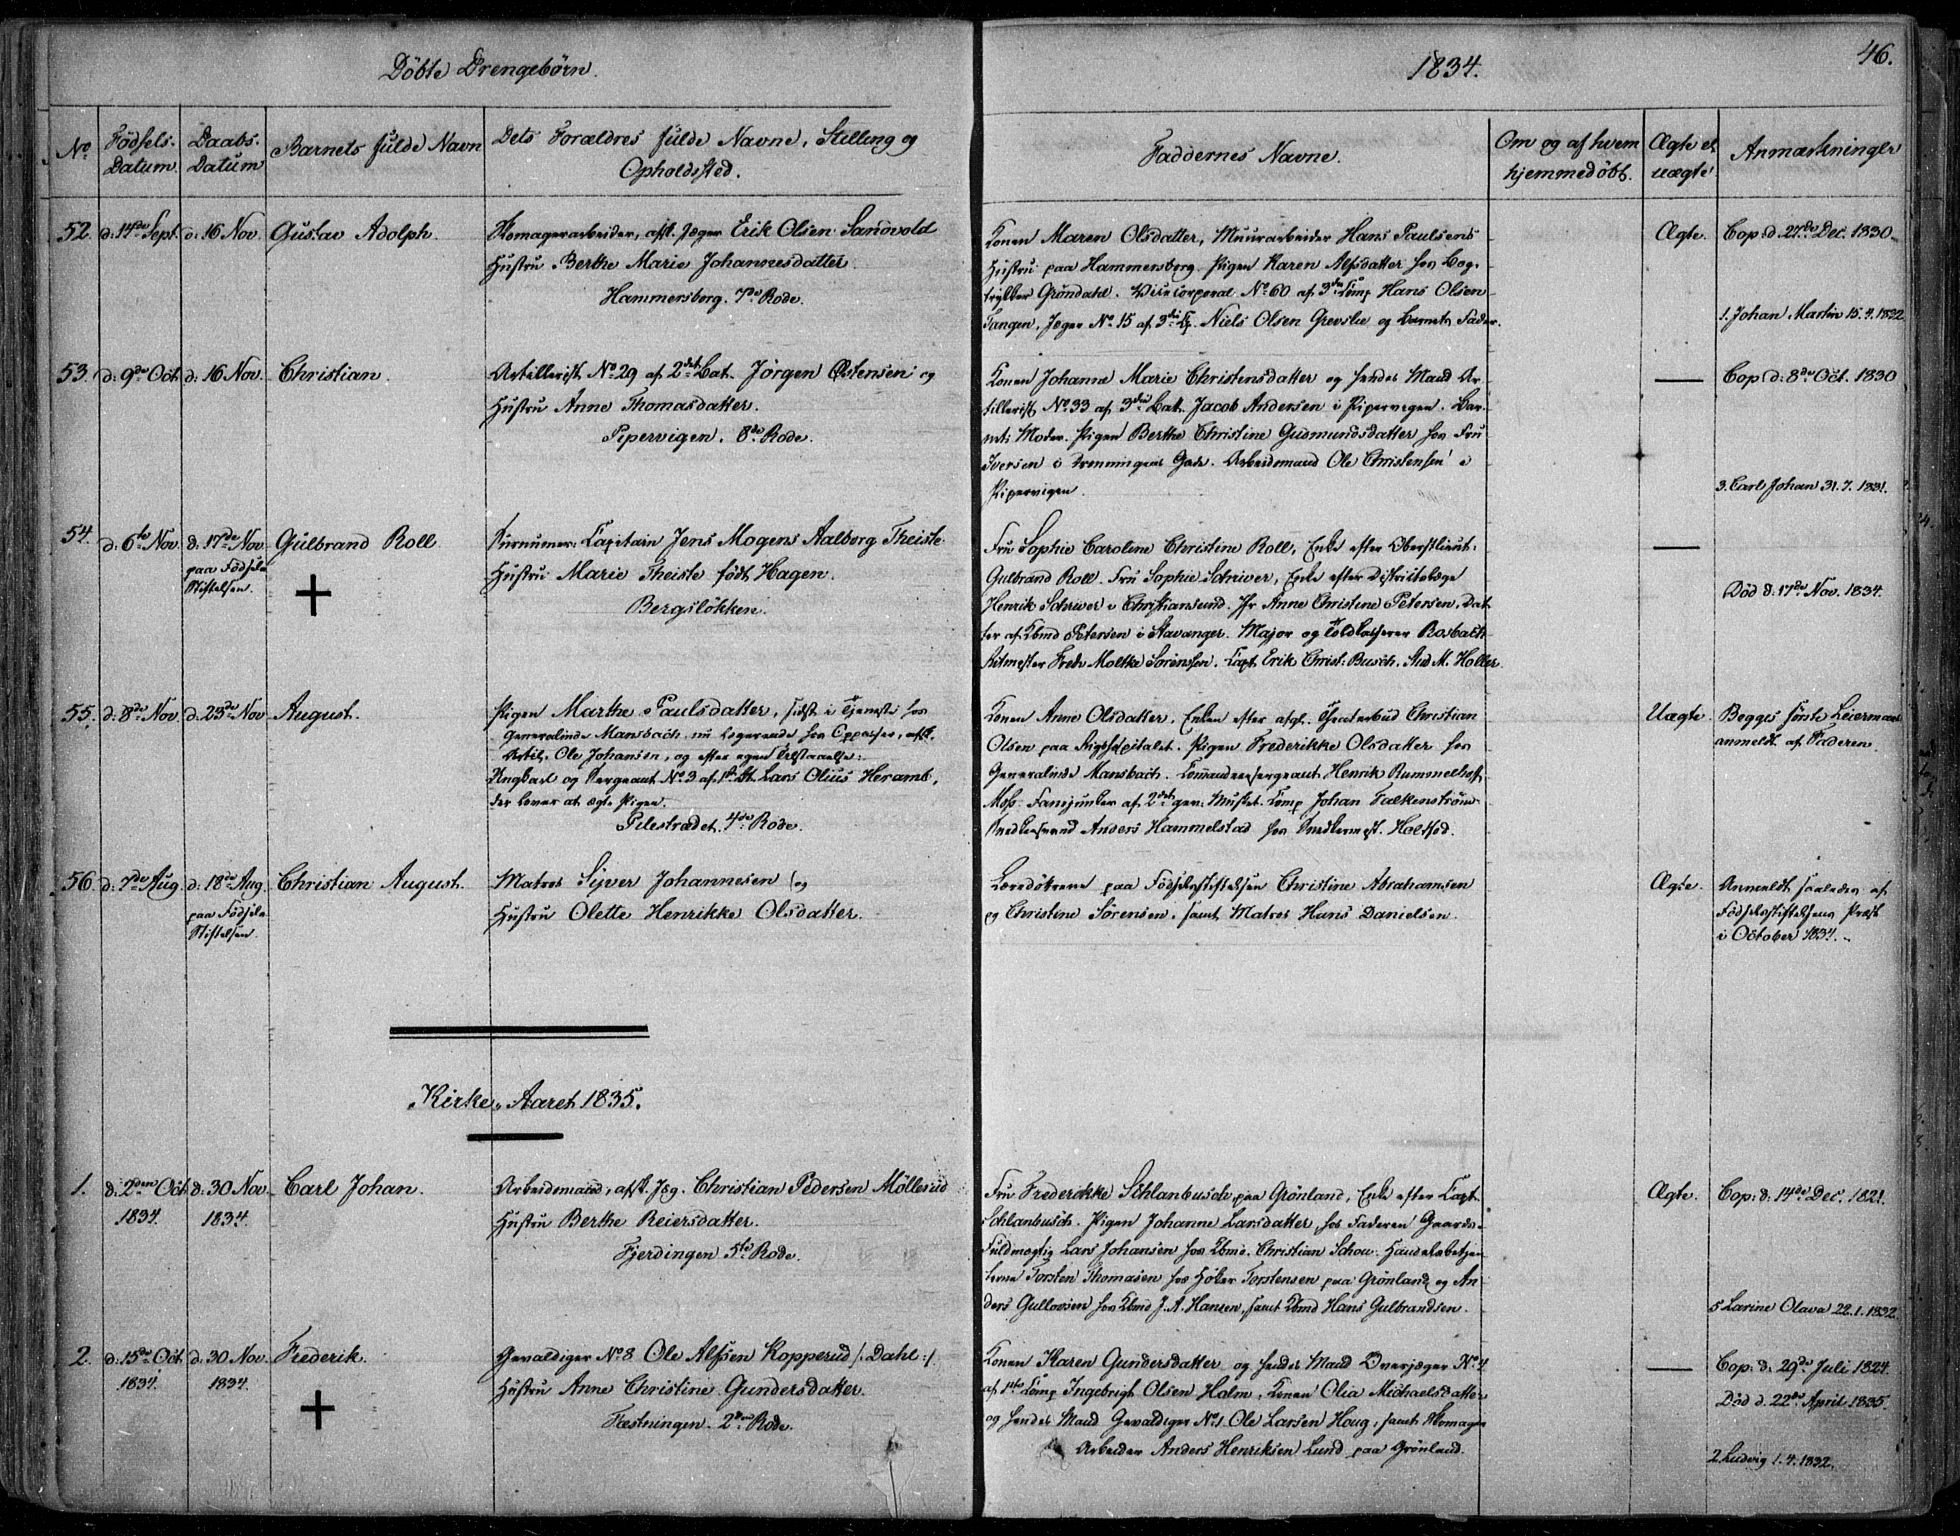 Döbte Drengebörn.
1834.
46.
No
Födsels-Datum
Daabs-Datum
Barnets fulde Navn
Dets Forældres fulde Navne, Stelling og Opholdssted.
Faddernes Navne.
Om og af hvem hjemmedöbt.
Ægte el uægte
Anmærkninger
52. d: 14de Sept. d: 16 Nov. Gustav Adolph.
Skomagerarbeider, afsk. Jæger Erik Olsen Sandvold
Hustru Berthe Marie Johannesdatter.
Hammersborg. 7de Rode.
Konen Maren Olsdatter, Muurarbeider Hans Paulsens
Hustru paa Hammersborg. Pigen Karen Alfsdatter hos Bog-
trykker Gröndahl. Vicecorporal No 60 af 3die Comp Hans Olsen
Tangen, Jæger No 15 af 3die Cp. Niels Olsen Grevslie og Barnets Fader.
Ægte.
Cop: d. 27de Dec. 1830.
1. Johan Martin 15.4.1832
53. d: 9de Oct d: 16 Nov. Christian.
Artillerist No 29 af 2det Bat. Jörgen Östensen og
Hustru Anne Thomasdatter.
Pipervigen. 8de Rode.
Konen Johanne Marie Christensdatter og hendes Mand Ar-
tillerist No 33 af 3die Bat. Jacob Andersen i Pipervigen. Bar-
nets Moder. Pigen Berthe Christine Gudmundsdatter hos Fru
Iversen i Dronningens Gade. Arbeidsmand Ole Christensen i
Pipervigen.
Cop: d: 8de Oct. 1830
3. Carl Johan 31.7.1831.
54. d: 6te Nov d: 17de Nov paa Födsels Stiftelsen. Gulbrand Roll
Surnumer: Capitain Jens Mogens Aalborg Theiste
Hustru Marie Theiste födt Hagen.
Bergslökken.
Fru Sophie Caroline Christine Roll, Enke efter Oberstlieut:
Gulbrand Roll. Fru Sophie Schriver, Enke efter Districtslæge
Henrik Schriver i Christiansund. Jfr Anne Christine Petersen, Dat-
ter af Kbmd Petersen i Stavanger. Major og Toldkasserer Rosbach
Ritmester Fredr Moltke Sörenssen. Capt. Erik Christ: Busch. Stud M. Holler
Död d. 17de Nov. 1834.
55. d: 8de Nov. d. 23de Nov August.
Pigen Marthe Paulsdatter, sidst i Tjeneste hos
Generalinde Mansbach, nu Logerende hos Oppasser, afsk.
Artil. Ole Johansen, og efter egen Tilstaaelse:
Ungkarl og Sergeant No 3 af 1ste Bt. Lars Olius Heramb,
der lover at ægte Pigen.
Pilestrædet. 4de Rode.
Konen Anne Olsdatter, Enken efter afgl. Theaterbud Christian
Olsen paa Rigshospitalet. Pigen Frederikke Olsdatter hos
Generalinde Mansbach. Commandeersergeant Henrik Rummelhof,
Moss. Fanejunker af 2det gev: Musket. Comp Johan Falkenström
Snedkersvend Anders Hammelstad hos Snedkermest. Holtfod.
Uægte.
Begges förste Leiermaal
anmeldt af Faderen.
56. d: 7de Aug. d: 18de Aug. paa Födsels Stiftelsen. Christian August.
Matros Siver Johannesen og
Hustru Olette Henrikke Olsdatter.
Læredöttrene paa Födselsstiftelsen Christine Abrahamsen
og Christine Sörensen, samt Matros Hans Danielsen.
Ægte.
Anmeldt saaledes af
Födselsstiftelsens Præst
i October 1834.
Kirke-Aaret 1835.
1. d. 2den Oct. 1834. d. 30 Nov. 1834. Carl Johan.
Arbeidsmand, afsk. Jæg. Christian Pedersen Möllerud
Hustru Berthe Reiersdatter.
Fjerdingen 5te Rode.
Fru Frederikke Schlanbusch paa Grönland, Enke efter Capt.
Schlanbusch. Pigen Johanne Larsdatter, hos Faderen Gaards-
Fuldmægtig Lars Johansen hos Kbmd. Christian Schou. Handelsbetjen-
terne Torsten Thomasen hos Höker Torstensen paa Grönland og An-
ders Gullovsen hos Kbmd J. A. Hansen, samt Kbmd Hans Gulbrandsen.
Ægte.
Cop: d: 14de Dec. 1821.
5 Larine Olava 22.1.1832.
2. d: 15de Oct. 1834. d: 30 Nov. 1834. Frederik.
Gevaldiger No 8 Ole Alfsen Kopperud /: Dahl :/
Hustru Anne Christine Gundersdatter.
Fæstningen. 2den Rode.
Konen Karen Gundersdatter og hendes Mand Overjæger No 4
af 1ste Comp Ingebrigt Olsen Holm, Konen Olia Michaelsdatter
og hendes Mand Gevaldiger No 1. Ole Larsen Houg, samt Skomager
Arbeider Anders Henriksen Lund paa Grönland.
Cop: d: 29de Juli 1824.
Död d. 22de April 1835.
2. Ludvig 1.4.1832.